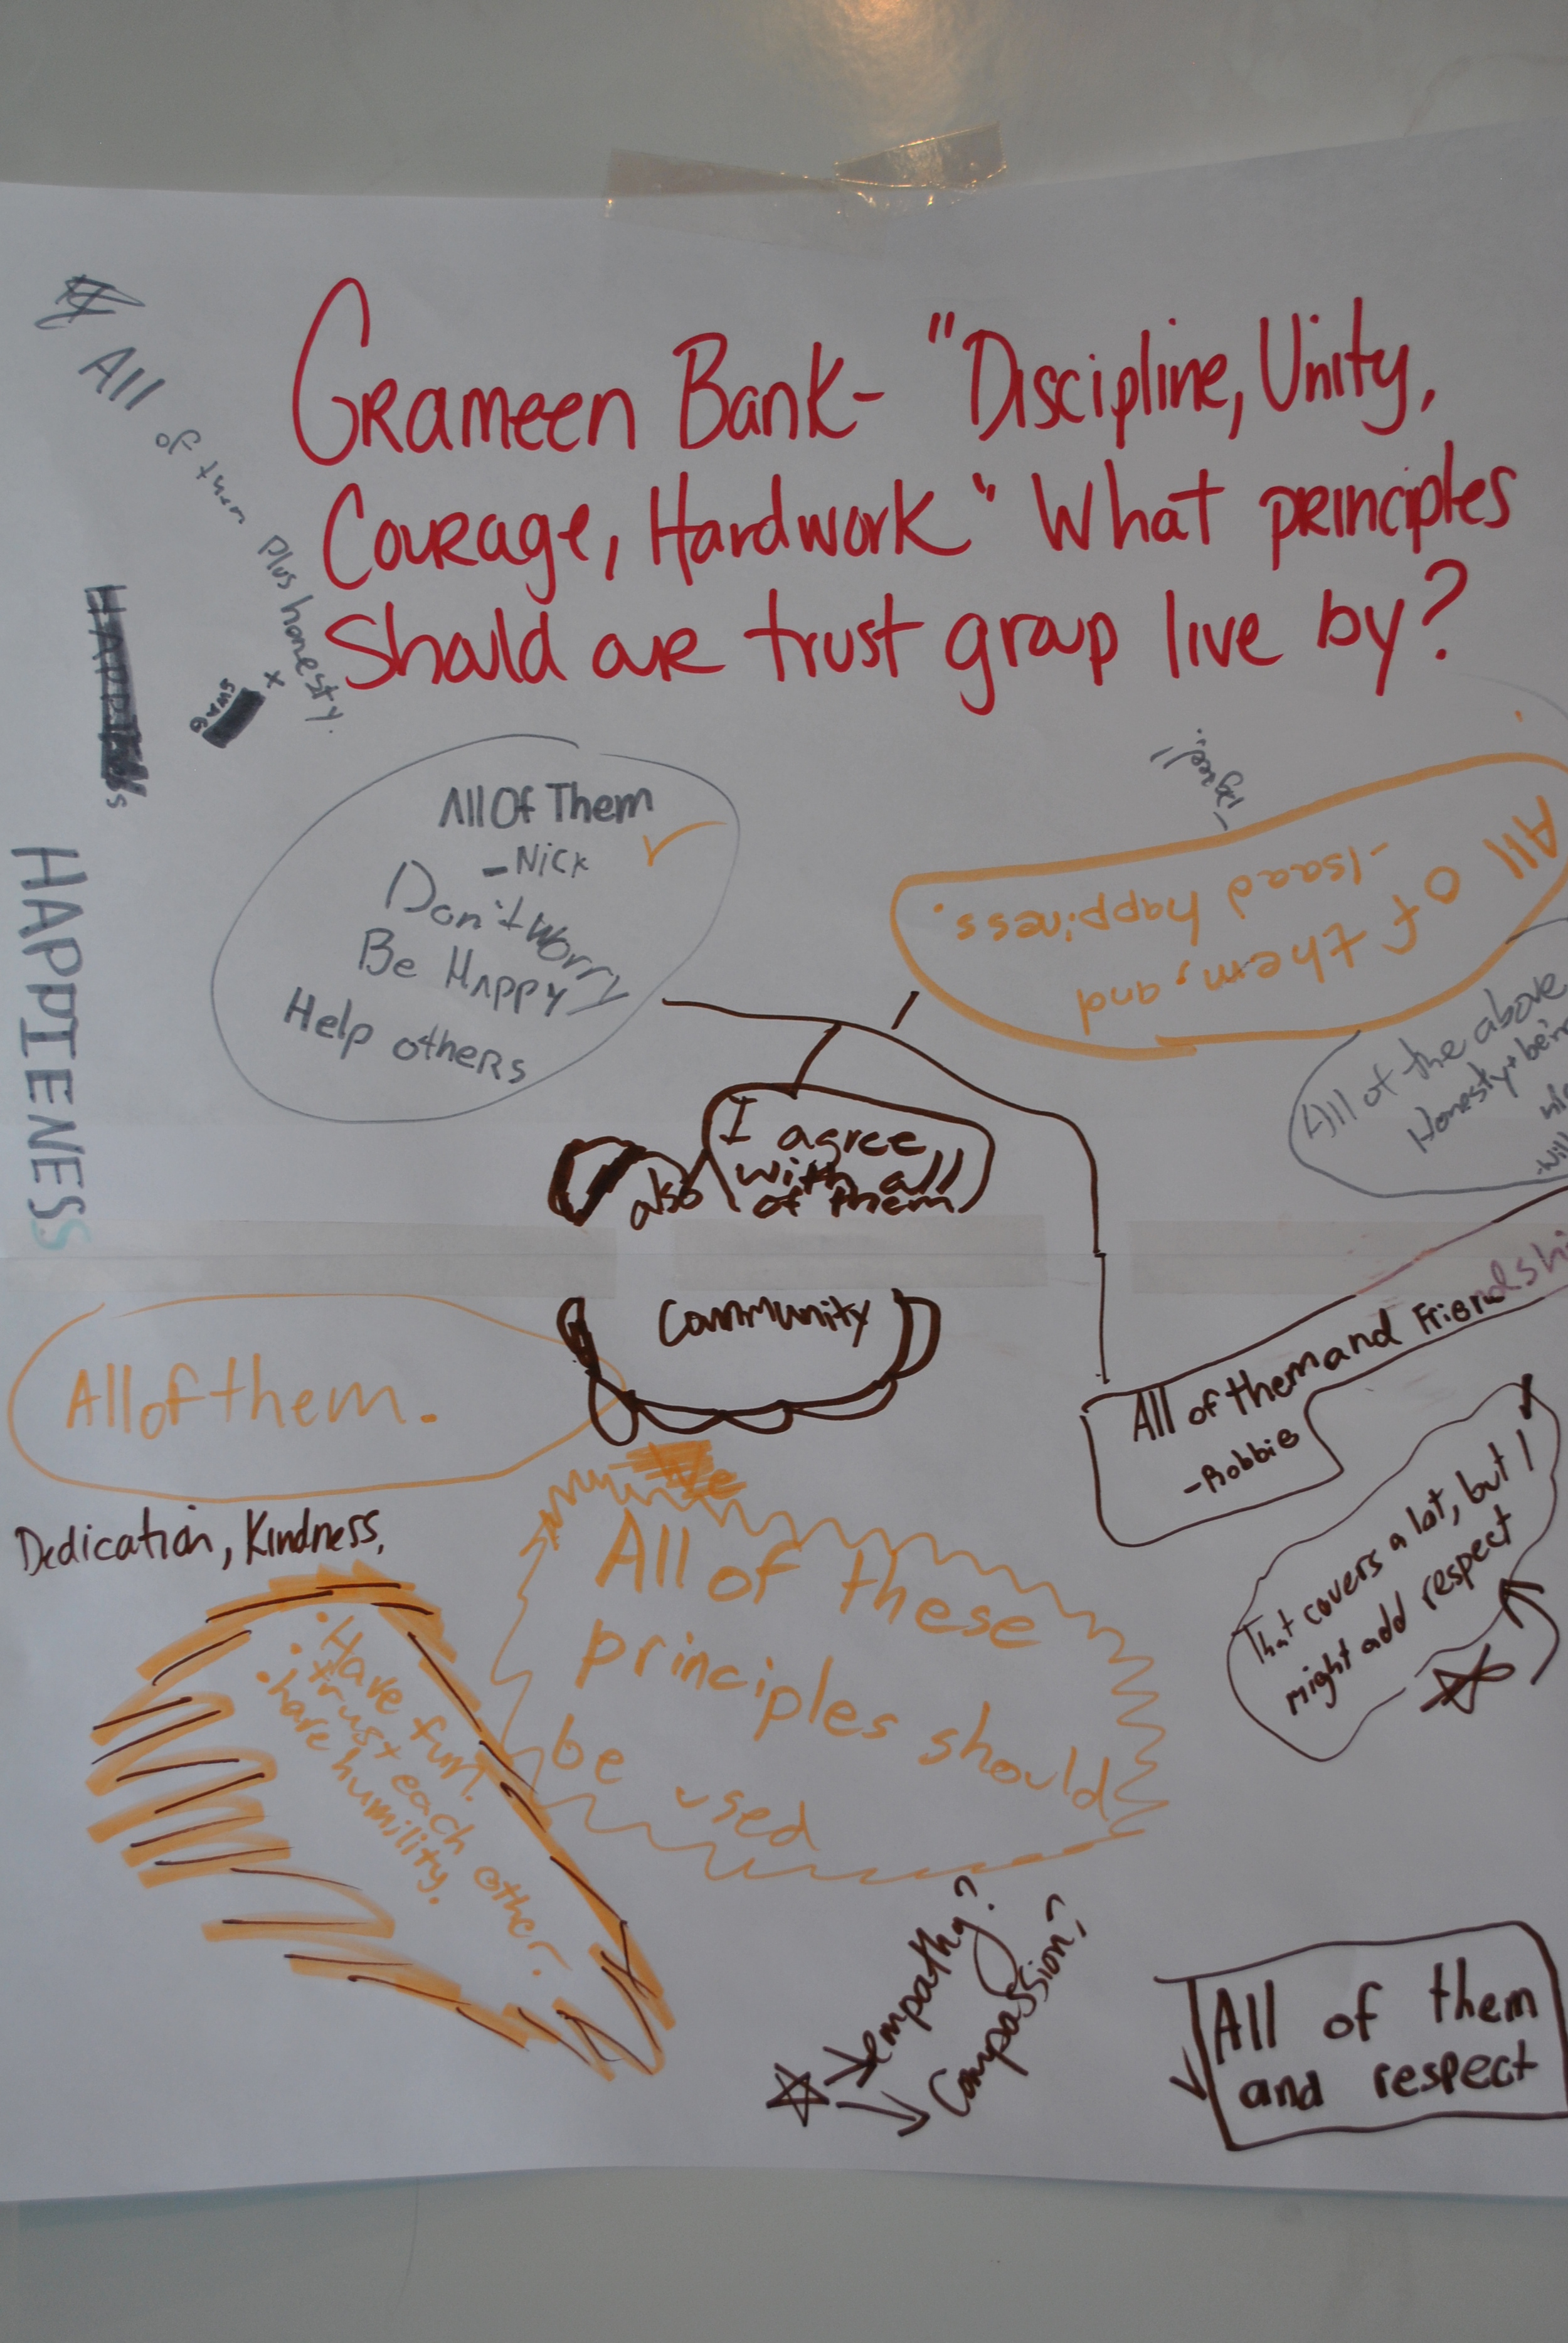 Grameen Bank- "Discipline, Unity,
Courage, Hardwork" What principles
Should our trust group live by?
All of them plus honesty.
x
swag
HAPPIENESS
All Of Them
-Nick
Don't worry
Be Happy
Help others
I agree!!
All of them, and
happiness.
-Isaac
All of the above
Honesty + being
I agree
with all
of them
also
Community
All of them and Friendshi
-Robbie
All of them.
Dedication, Kindness,
That covers a lot, but I
might add respect
All of these
principles should
be used
• Have fun.
• trust each other.
• have humility.
empathy?
Compassion?
All of them
and respect